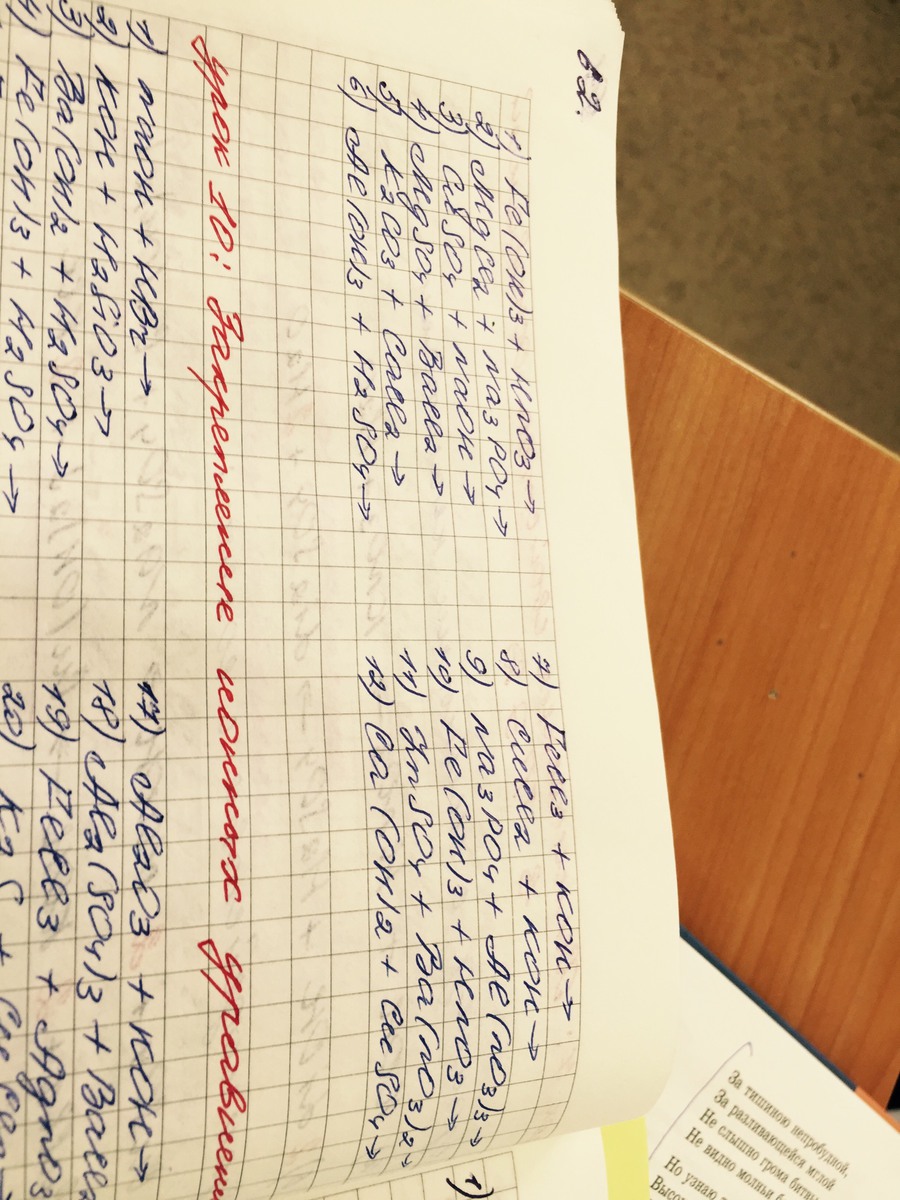 В2.
1) Fe(OH)3 + HNO3 →
2) MgCl2 + Na3PO4 →
3) CuSO4 + NaOH →
4) MgSO4 + BaCl2 →
5) K2CO3 + CaCl2 →
6) Al(OH)3 + H2SO4 →
7) FeCl3 + KOH →
8) CuCl2 + KOH →
9) Na3PO4 + Al(NO3)3 →
10) Fe(OH)3 + HNO3 →
11) ZnSO4 + Ba(NO3)2 →
12) Ca(OH)2 + CuSO4 →
Урок 10: Закрепление ионных уравнени
1) NaOH + HBr →
2) KOH + H2SiO3 →
3) Ba(OH)2 + H2SO4 →
4) Fe(OH)3 + H2SO4 →
17) + KOH →
18) Al2(SO4)3 + BaCl2
19) FeCl3 + AgNO3
20) K2S +
1)
За тишиною непробудной,
За разливающейся мглой
Не слышно грома битвы
Не видно молньи б
Но узнаю
Высо